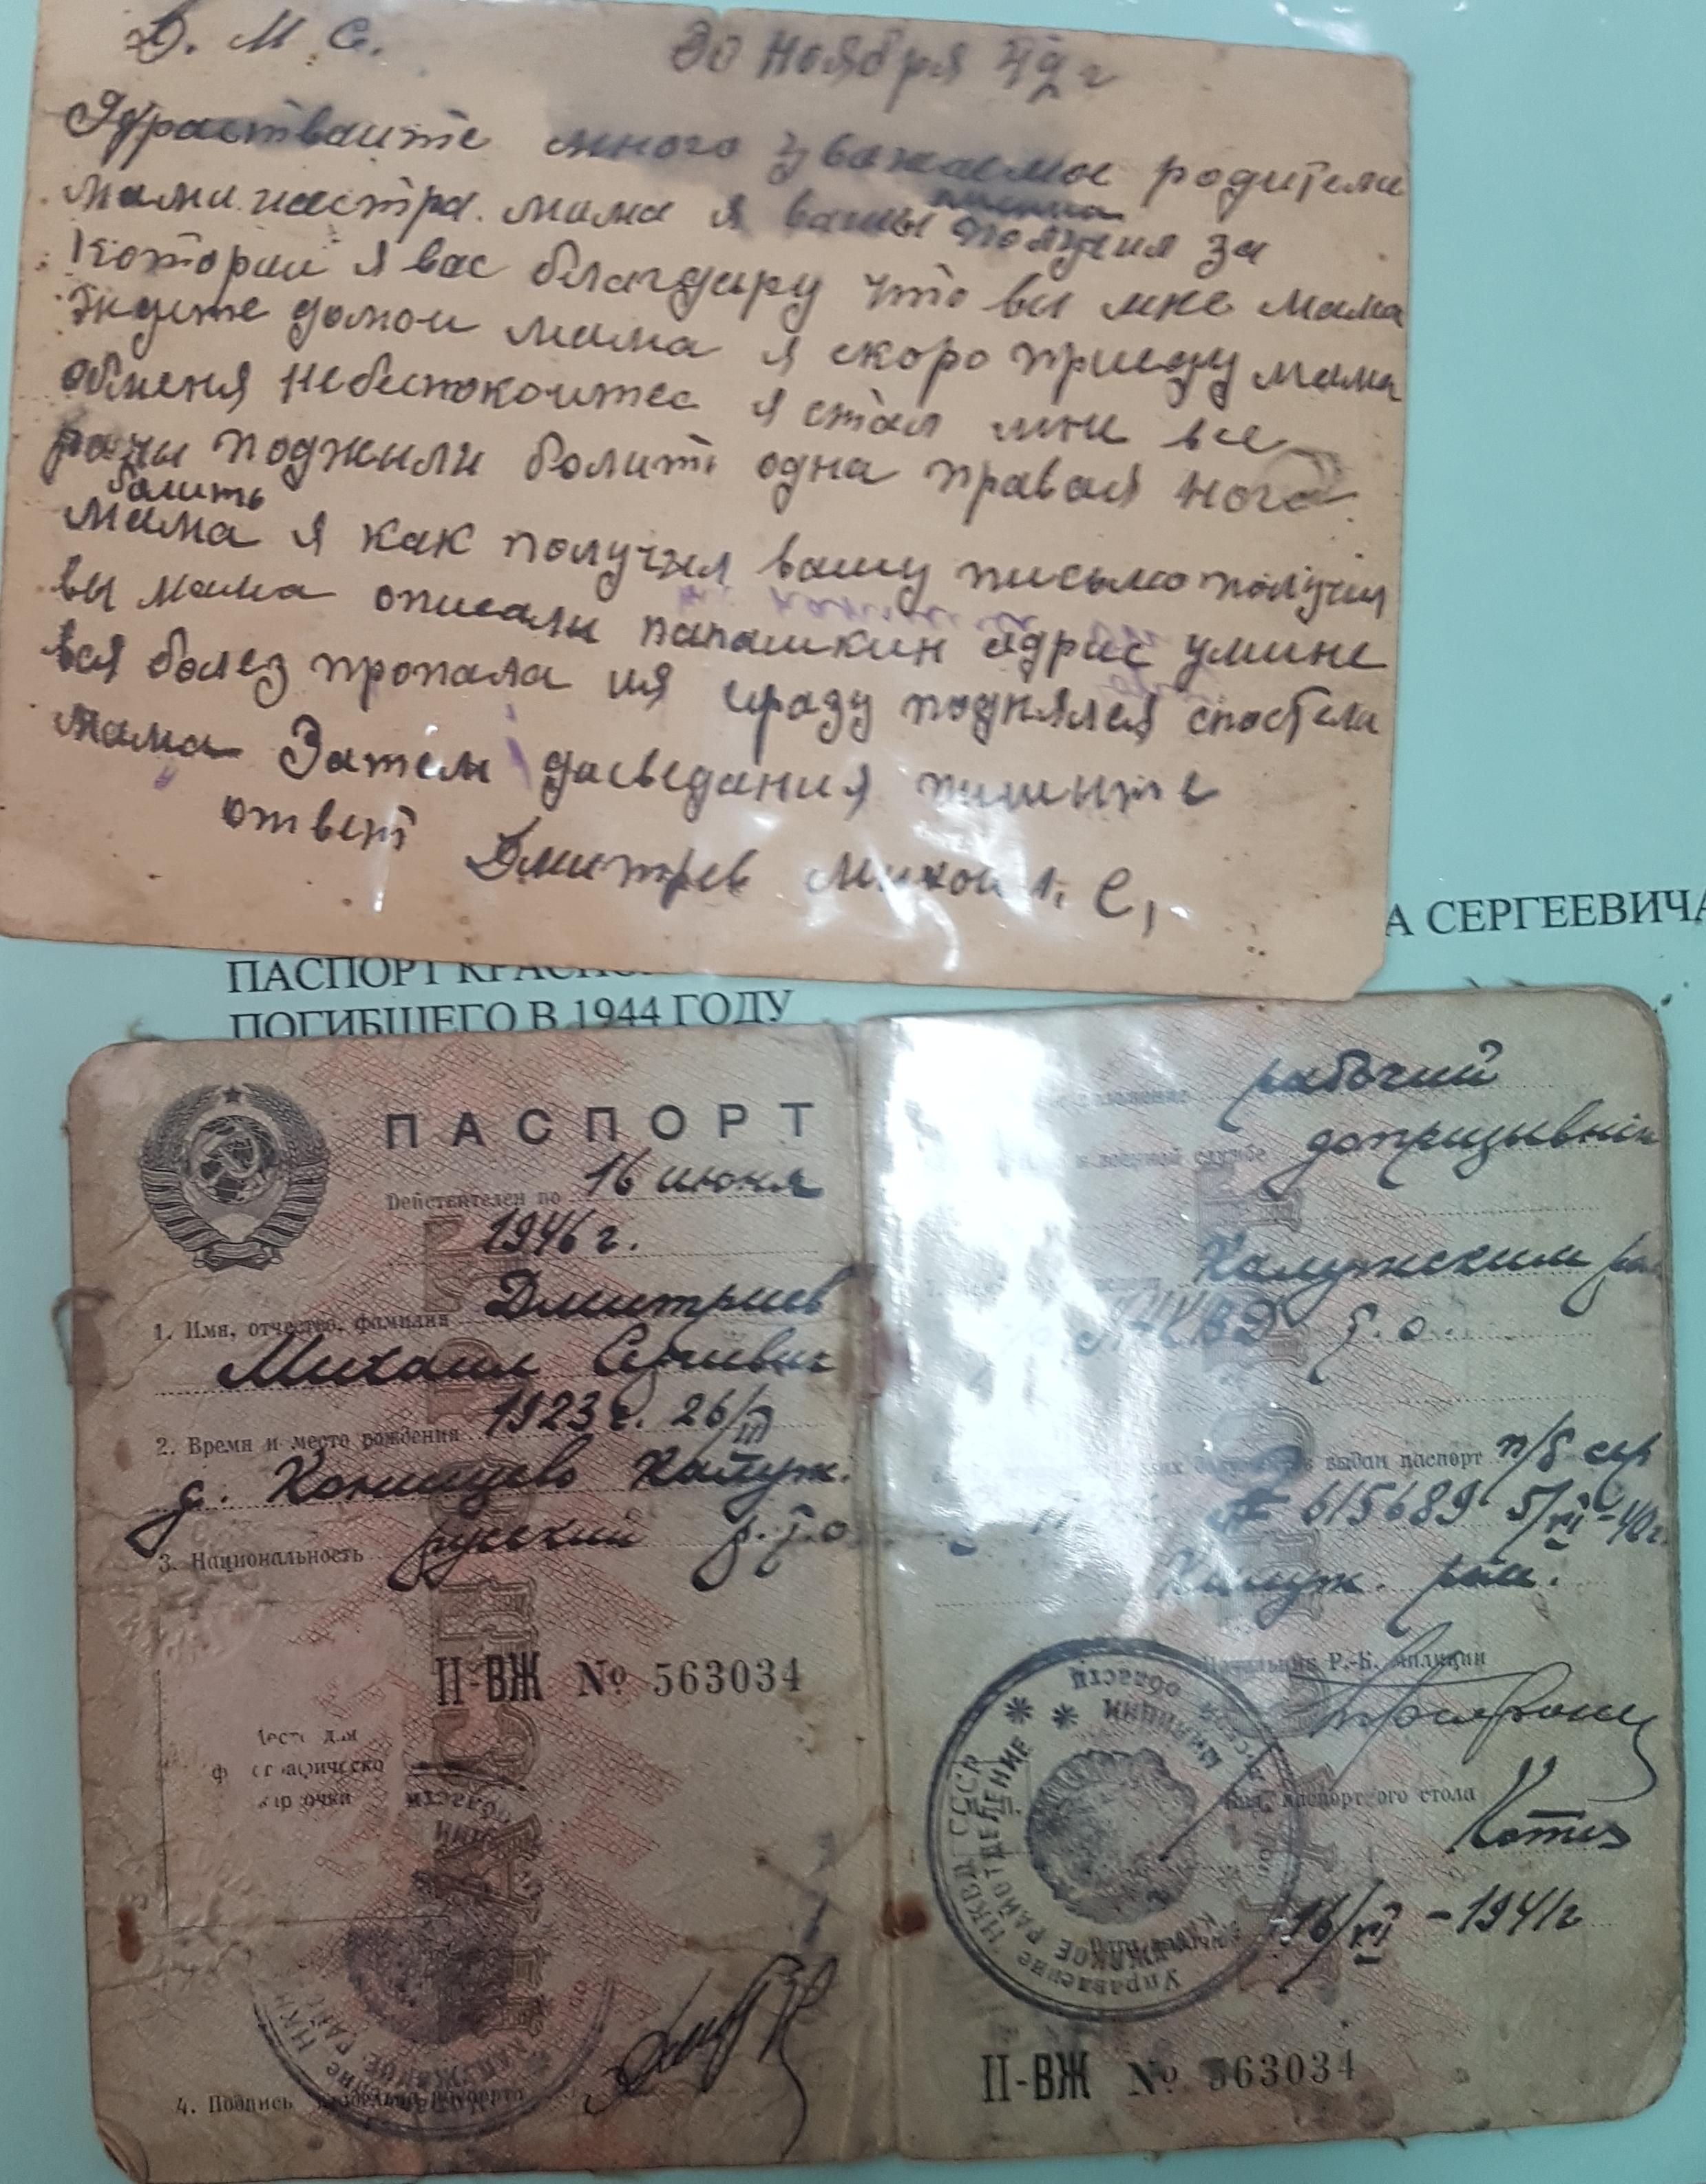 Д. М. С. 30 Ноября 42 г
Здраствайте много уважаемое родители
мама и састра. мама я вашы письма получил за
Которыи я вас благдару что вы мне мама
ждите домои мама я скоро приеду мама
обменя небеспокоитес я стал мни все
раны поджыли болить одна правая нога
болить
мама я как получил вашу письмо получил
вы мама описали папашкин адрис умине
вся болез пропала ия сразу поднялся спостели
мама Затем досведания пишыте
ответ Дмитрев Михоил. С,
А СЕРГЕЕВИЧА
ПАСПОРТ
ПОГИБШЕГО В 1944 ГОДУ
ПАСПОРТ
Действителен по 16 июня
1946 г.
1. Имя, отчество, фамилия Дмитриев
Михаил Сергиевич
2. Время и место рождения 1923 г. 26/
д. Конищево Калуж.
3. Национальность русский р. т. о.
II-ВЖ № 563034
Место для
фотографическо
карточки
4. Подпись владельца паспорта
рабочий
к военной службе допризывник
Калужским
НКВД Т. о.
выдан паспорт п/б сер
№ 615689 5/VI-40г.
Калуж. рай.
Начальник Р.-К. милиции
Нач. паспортного стола
16/VI-1941г
Управление НКВД СССР
РАЙОТДЕЛЕНИЕ МИЛИЦИИ
области
II-ВЖ № 563034